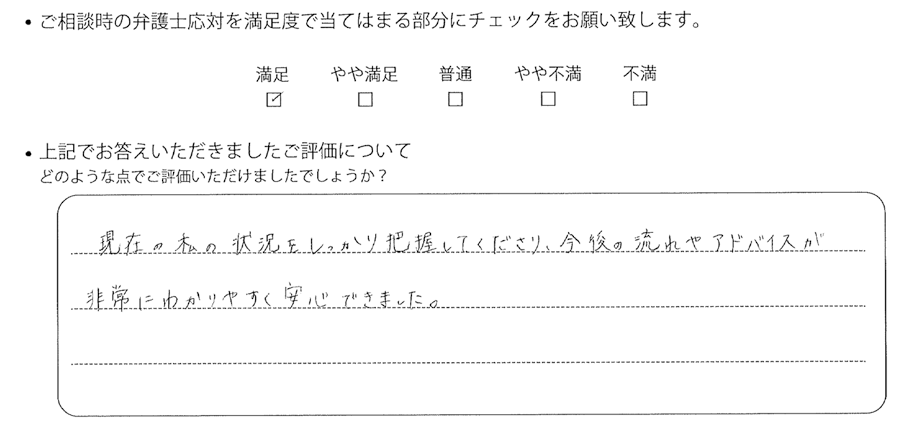 ・ご相談時の弁護士応対を満足度で当てはまる部分にチェックをお願い致します。
満足 やや満足 普通 やや不満 不満
☑ □ □ □ □
・上記でお答えいただきましたご評価について
どのような点でご評価いただけましたでしょうか？
現在の私の状況をしっかり把握してくださり、今後の流れやアドバイスが
非常にわかりやすく安心できました。